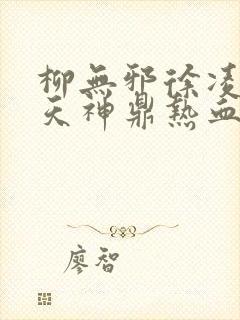 柳無邪徐凌
天神鼎熱血
廖智